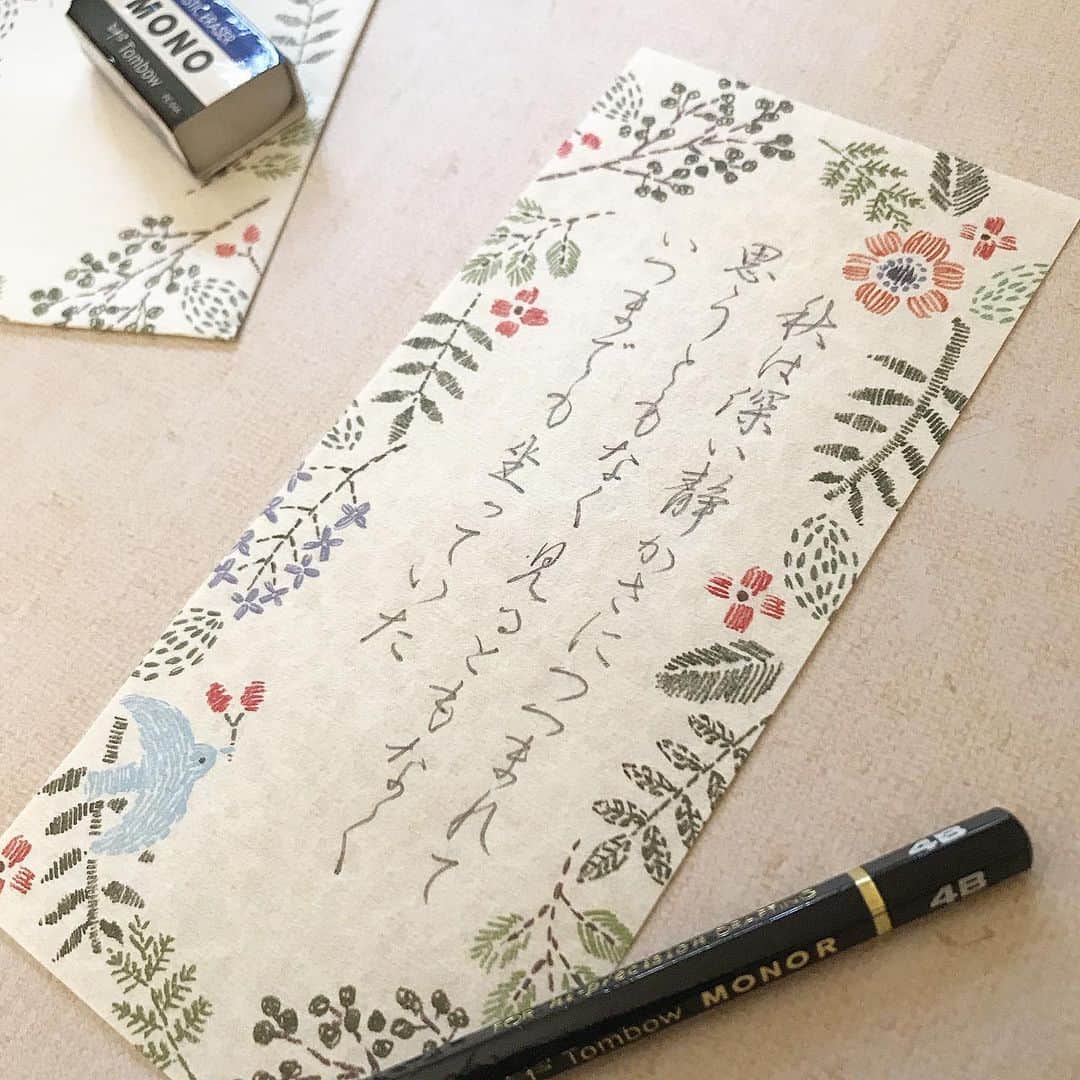 秋は深い静かさにつつまれて
思うともなく見るともなく
いつまでも坐っていた
STIC ERASER
MONO
Tombow
4B
4B
FOR HI-PRECISION DRAFTING
Tombow MONO R